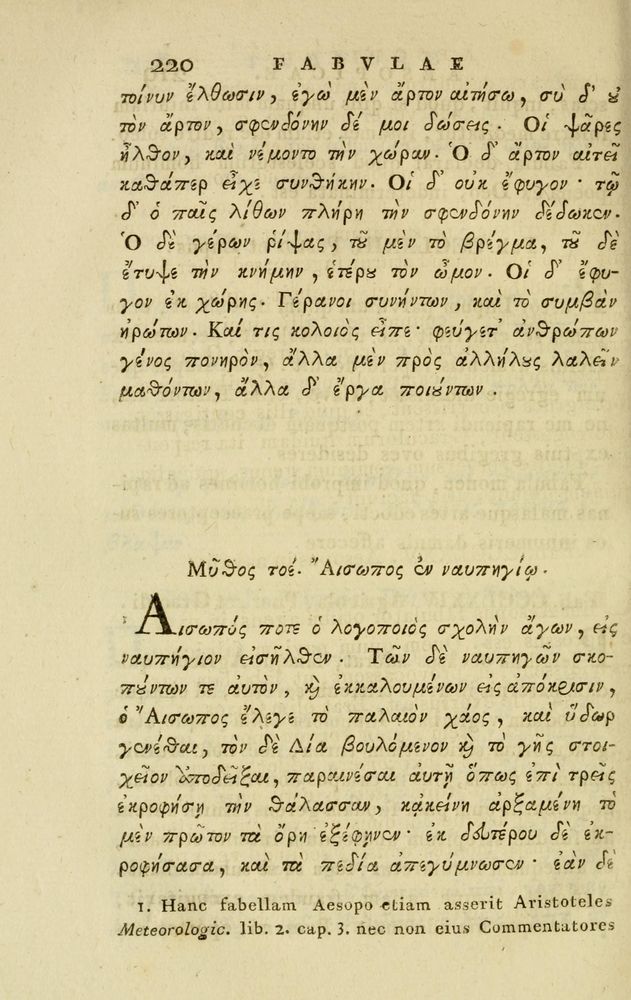 220 FABVLAE
τοίνυν ἔλθωσιν, ἐγὼ μὲν ἄρτον αἰτήσω, σὺ δ' ȣ
τὸν ἄρτον, σφενδόνην δέ μοι δώσεις. Οἱ ψᾶρες
ἦλθον, καὶ νέμοντο τὴν χώραν. Ὁ δ' ἄρτον αἰτεῖ
καθάπερ εἶχε συνθήκην. Οἱ δ' οὐκ ἔφυγον· τῷ
δ' ὁ παῖς λίθων πλήρη τὴν σφενδόνην δέδωκεν.
Ὁ δὲ γέρων ῥίψας, τȣ͂ μὲν τὸ βρέγμα, τȣ͂ δὲ
ἔτυψε τὴν κνήμην, ἑτέρȣ τὸν ὦμον. Οἱ δ' ἔφυ-
γον ἐκ χώρης. Γέρανοι συνήντων, καὶ τὸ συμβὰν
ἠρώτων. Καί τις κολοιὸς εἶπε· φεύγετ' ἀνθρώπων
γένος πονηρὸν, ἄλλα μὲν πρὸς ἀλλήλȣς λαλεῖν
μαθόντων, ἄλλα δ' ἔργα ποιȣ́ντων.
Μῦθος τοέ. Ἄισωπος ἐν ναυπηγίῳ.
Αισωπός ποτε ὁ λογοποιὸς σχολὴν ἄγων, εἰς
ναυπήγιον εἰσῆλθεν. Τῶν δὲ ναυπηγῶν σκο-
πȣ́ντων τε αὐτὸν, ϗ ἐκκαλουμένων εἰς ἀπόκρισιν,
ὁ Ἄισωπος ἔλεγε τὸ παλαιὸν χάος, καὶ ὕδωρ
γενέσθαι, τὸν δὲ Δία βουλόμενον ϗ τὸ γῆς στοι-
χεῖον ὑποδεῖξαι, παραινέσαι αὐτῇ ὅπως ἐπὶ τρεῖς
ἐκροφήσῃ τὴν θάλασσαν, κᾀκείνη ἀρξαμένη τὸ
μὲν πρῶτον τὰ ὄρη ἐξέφηνεν· ἐκ δευτέρου δὲ ἐκ-
ροφήσασα, καὶ τὰ πεδία ἀπεγύμνωσεν· ἐὰν δὲ
1. Hanc fabellam Aesopo etiam asserit Aristoteles
Meteorologic. lib. 2. cap. 3. nec non eius Commentatores